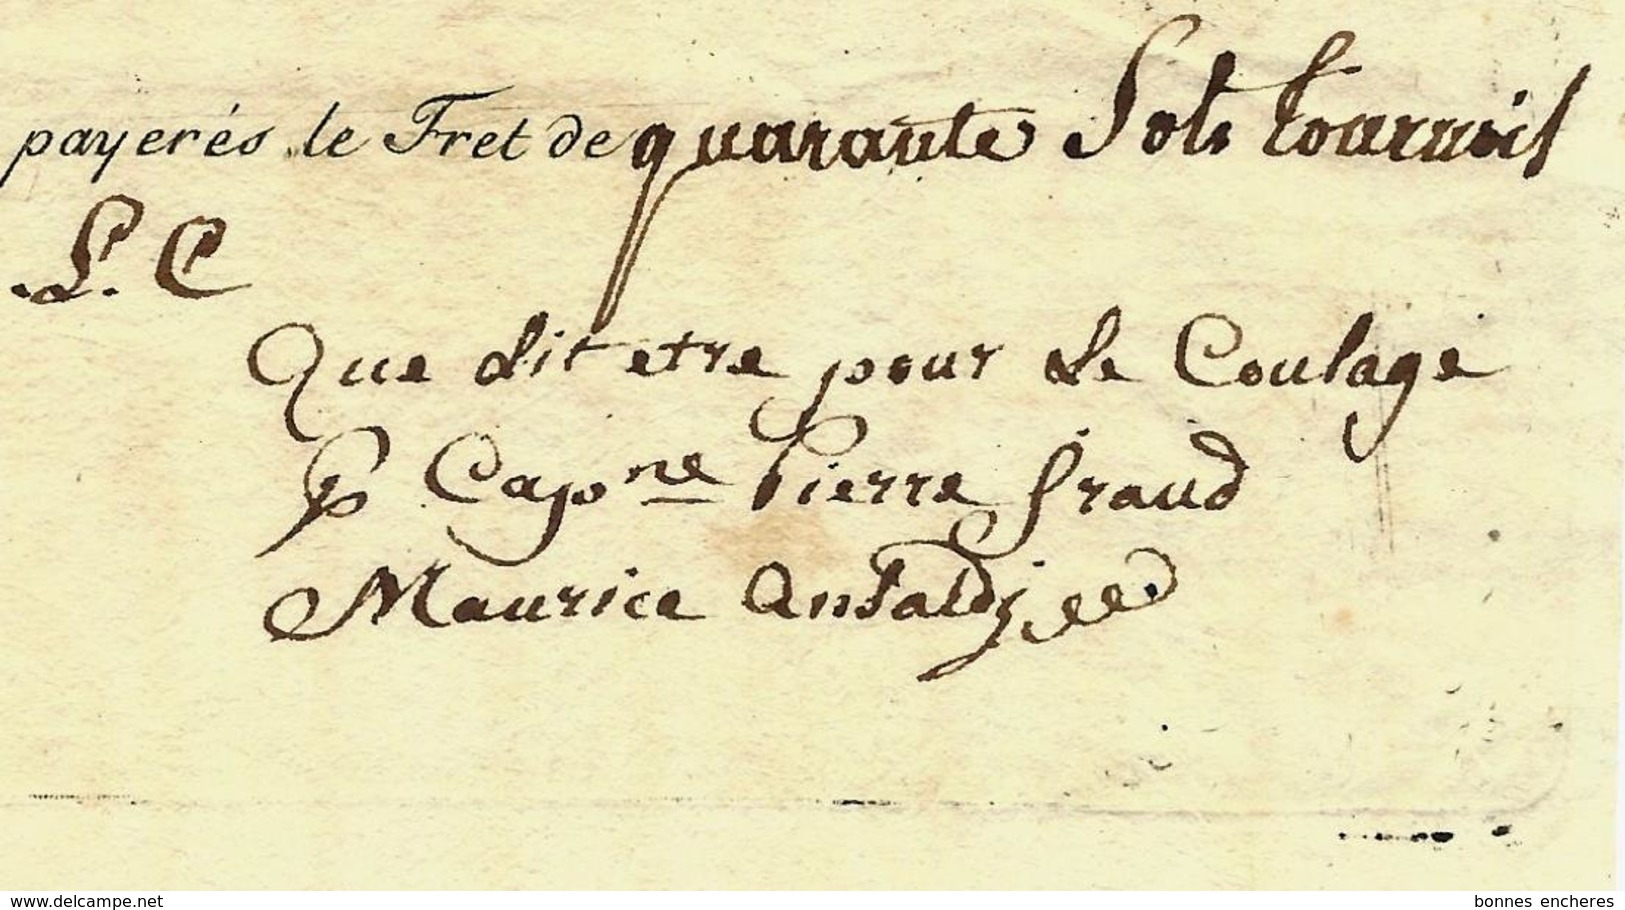 payerés le Fret de quarante Sols tournois
L. C
Que dit etre pour le Coulage
Capne Pierre Giraud
Maurice
www.delcampe.net bonnes encheres